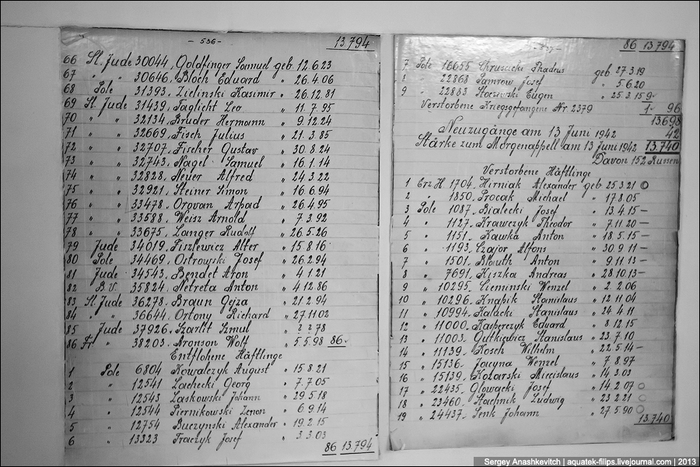 - 536 -
13.794
66 Sl. Jude 30044, Goldfinger Samuel geb. 12.6.23
67 " " 30646, Bloch Eduard " 26.4.06
68 Pole 31393, Zielinski Kasimir " 26.12.81
69 Sl. Jude 31439, Taglicht Leo " 11.7.95
70 " " 32134, Bruder Hermann " 9.12.24
71 " " 32669, Fisch Julius " 21.3.85
72 " " 32707, Fischer Gustav " 30.8.24
73 " " 32743, Nagel Samuel " 16.1.14
74 " " 32828, Neuer Alfred " 24.3.22
75 " " 32921, Steiner Simon " 16.6.94
76 " " 33478, Orgvan Arpad " 26.4.95
77 " " 33588, Weisz Arnold " 7.3.92
78 " " 33675, Langer Rudolf " 26.5.26
79 Jude 34019, Fiszlewicz Alter " 15.8.16
80 Pole 34469, Ostrowski Josef " 26.2.94
81 Jude 34543, Bendet Aron " 4.1.21
82 B.V. 35824, Petreta Anton " 4.12.86
83 Sl. Jude 36278, Braun Geza " 21.2.94
84 " " 36644, Ortony Richard " 27.11.02
85 Jude 37926, Szmul " 2.2.78
86 Fr. " 38203, Aronson Wolf " 5.5.98 86 -
Entflohene Häftlinge
1 Pole 6804 Kowalczyk August " 15.8.21
2 " 12541 Lachecki Georg " 7.7.05
3 " 12543 Laskowski Johann " 29.5.18
4 " 12544 Piernikowski Zenon " 6.9.14
5 " 12754 Buczynski Alexander " 19.2.15
6 " 13323 Traczyk Josef " 3.3.
86 13.794
86 13.794
7 Pole 16655 Chruscicki Thadeus geb 27.3.19
8 " 22868 Pamrow Josef " 5.6.20
9 " 22883 Stoczewski Eugen " 25.3.15 9-
Verstorbene Kriegsgefangene Nr. 2379 1- 96
13698
Neuzugänge am 13 Juni 1942 42
Stärke zum Morgenappell am 13 Juni 1942 13.740
Davon 152 Russen
Verstorbene Häftlinge
1 Erz. H. 1704, Hirniak Alexander geb 25.3.21
2 " 1850, Procak Michael " 17.3.05
3 Pole 1087, Bialecki Josef " 13.4.15 -
4 " 1127, Krawczyk Theodor " 7.11.20 -
5 " 1151, Kawka Anton " 18.5.15 -
6 " 1193, Czajor Alfons " 30.9.11 -
7 " 1501, Blauth Anton " 9.11.13 -
8 " 7691, Hyszka Andreas " 28.10.13 -
9 " 10295, Cieminski Wenzel " 2.2.06
10 " 10296, Knapik Stanislaus " 12.11.04
11 " 10994, Kalacki Stanislaus " 24.4.11
12 " 11000, Kacperczyk Eduard " 8.12.15
13 " 11003, Gutkiewicz Stanislaus " 23.7.10
14 " 11139, Kosch Wilhelm " 22.5.14 -
15 " 15136, Jaoyna Wenzel " 7.8.97
16 " 15139, Kozarski Miecislaus " 14.3.03
17 " 22435, Glowacki Josef " 14.2.07
18 " 23460, Stachnik Ludwig " 23.2.21
19 " 24437, Senk Johann " 27.5.90
13.740
Sergey Anashkevitch | aquatek-filips.livejournal.com | 2013